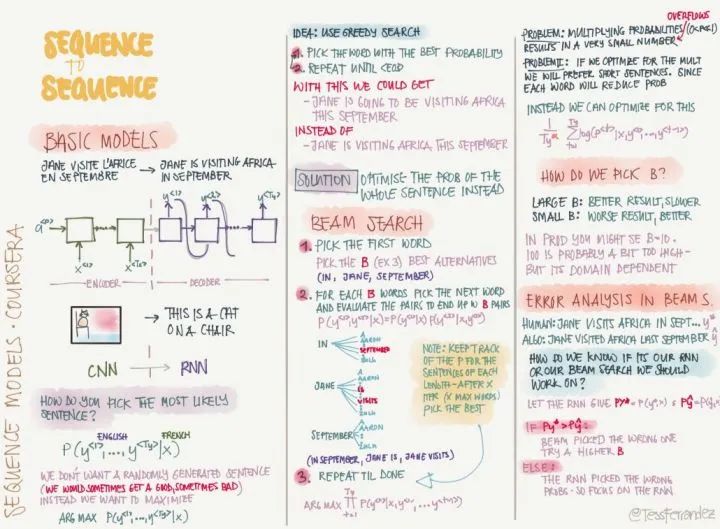 SEQUENCE
TO
SEQUENCE
BASIC MODELS
JANE VISITE L'AFRICE
EN SEPTEMBRE
→ JANE IS VISITING AFRICA
IN SEPTEMBER
y<1> y<2> y<Ty>
a<0>
x<1> x<Tx>
ENCODER DECODER
THIS IS A CAT
ON A CHAIR
CNN RNN
HOW DO YOU PICK THE MOST LIKELY
SENTENCE?
ENGLISH FRENCH
P(y<1>,..., y<Ty>|x)
WE DON'T WANT A RANDOMLY GENERATED SENTENCE
(WE WOULD SOMETIMES GET A GOOD, SOMETIMES BAD)
INSTEAD WE WANT TO MAXIMIZE
ARG MAX P(y<1>,..., y<Ty>|x)
SEQUENCE MODELS · COURSERA
IDEA: USE GREEDY SEARCH
1. PICK THE WORD WITH THE BEST PROBABILITY
2. REPEAT UNTIL <EOD>
WITH THIS WE COULD GET
- JANE IS GOING TO BE VISITING AFRICA
THIS SEPTEMBER
INSTEAD OF
- JANE IS VISITING AFRICA THIS SEPTEMBER
SOLUTION OPTIMISE THE PROB OF THE
WHOLE SENTENCE INSTEAD
BEAM SEARCH
1. PICK THE FIRST WORD
PICK THE B (EX 3) BEST ALTERNATIVES
(IN, JANE, SEPTEMBER)
2. FOR EACH B WORDS PICK THE NEXT WORD
AND EVALUATE THE PAIRS TO END UP W B PAIRS
P(y<1>,y<2>|x) = P(y<1>|x) P(y<2>|x,y<1>)
IN
A
AARON
SEPTEMBER
ZULU
JANE
A
AARON
IS
VISITS
ZULU
SEPTEMBER
A
AARON
ZULU
NOTE: KEEP TRACK
OF THE P FOR THE
SENTENCES OF EACH
LENGTH - AFTER X
ITER (X MAX WORDS)
PICK THE BEST
(IN SEPTEMBER, JANE IS, JANE VISITS)
3. REPEAT TIL DONE
ARG MAX Ty ∏ t=1 P(y<t>|x,y<1>,...,y<t-1>)
OVERFLOWS
PROBLEM: MULTIPLYING PROBABILITIES (0<P<<1)
RESULTS IN A VERY SMALL NUMBER
PROBLEM II: IF WE OPTIMIZE FOR THE MULT
WE WILL PREFER SHORT SENTENCES. SINCE
EACH WORD WILL REDUCE PROB
INSTEAD WE CAN OPTIMIZE FOR THIS
1/Ty^α Ty ∑ t=1 log(P<t>|x,y<1>,...,y<t-1>)
HOW DO WE PICK B?
LARGE B: BETTER RESULT, SLOWER
SMALL B: WORSE RESULT, BETTER
IN PROD YOU MIGHT SE B=10.
100 IS PROBABLY A BIT TOO HIGH -
BUT ITS DOMAIN DEPENDENT
ERROR ANALYSIS IN BEAM S.
HUMAN: JANE VISITS AFRICA IN SEPT... y*
ALGO: JANE VISITED AFRICA LAST SEPTEMBER ŷ
HOW DO WE KNOW IF ITS OUR RNN
OR OUR BEAM SEARCH WE SHOULD
WORK ON?
LET THE RNN GIVE Py* = P(y*|x) & Pŷ = P(ŷ|x)
IF Py* > Pŷ:
BEAM PICKED THE WRONG ONE
TRY A HIGHER B
ELSE:
THE RNN PICKED THE WRONG
PROBS - SO FOCUS ON THE RNN
@TessFerrandez